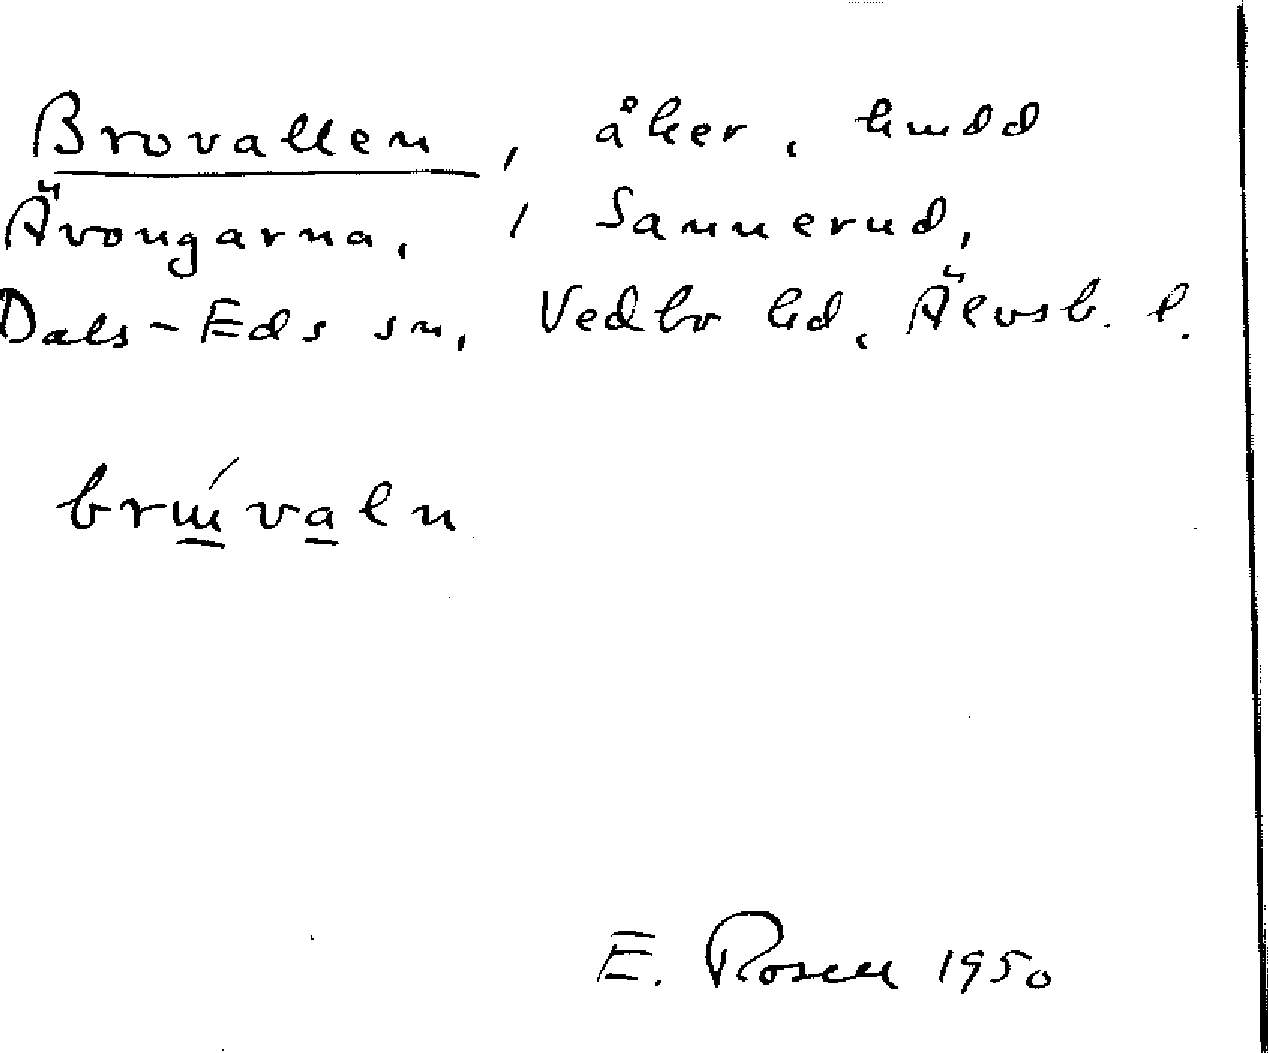 Brovallen, åker, hmdd
Ävongarna, / Sannerud,
Dals-Eds sn, Vedbo hd, Älvsb. l.
brɯ́valn
E. Rosell 1950